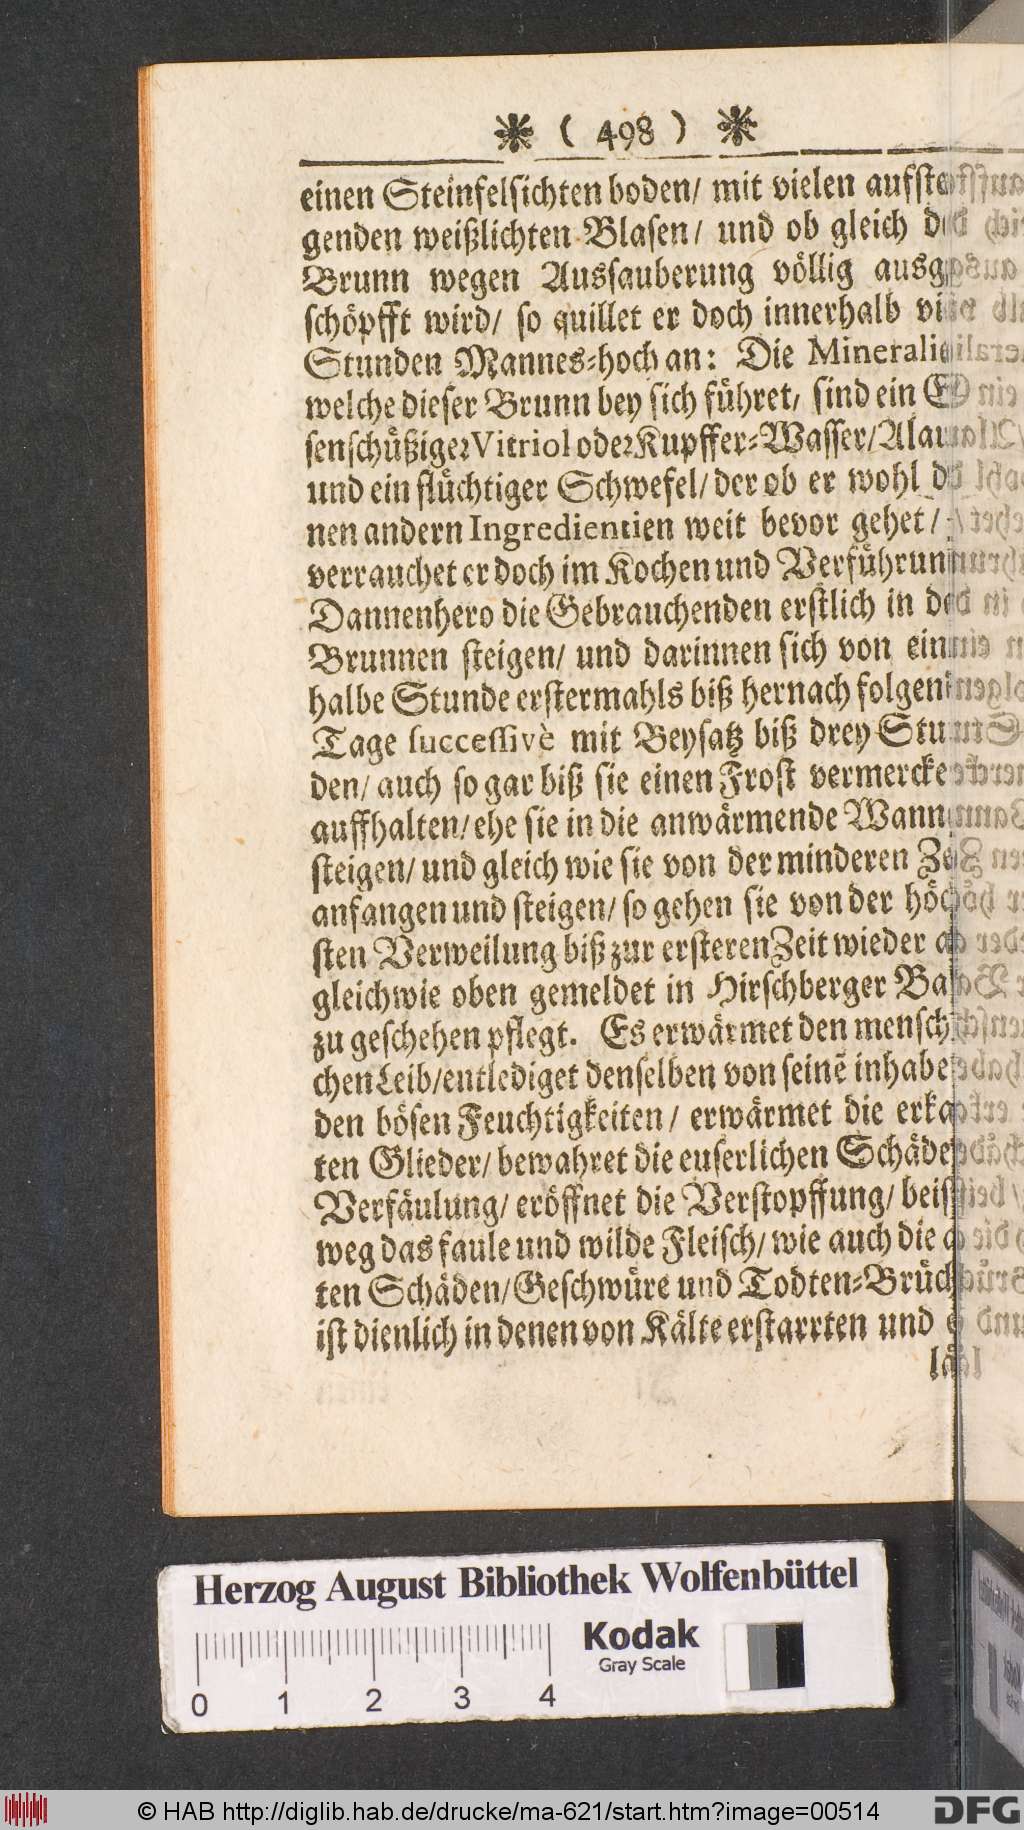 * ( 498 ) *
einen Steinfelsichten boden/ mit vielen aufste
genden weißlichten Blasen/ und ob gleich
Brunn wegen Aussauberung völlig ausg
schöpfft wird/ so quillet er doch innerhalb
Stunden Mannes-hoch an: Die Minerali
welche dieser Brunn bey sich führet/ sind ein
senschüßiger Vitriol oder Kupffer-Wasser/ Alau
und ein flüchtiger Schwefel/ der ob er wohl
nen andern Ingredientien weit bevor gehet/
verrauchet er doch im Kochen und Verführun
Dannenhero die Gebrauchenden erstlich in
Brunnen steigen/ und darinnen sich von ein
halbe Stunde erstermahls biß hernach folgen
Tage successivè mit Beysatz biß drey Stu
den/ auch so gar biß sie einen Frost vermercke
auffhalten/ ehe sie in die anwärmende Wann
steigen/ und gleich wie sie von der minderen Ze
anfangen und steigen/ so gehen sie von der höch
sten Verweilung biß zur ersteren Zeit wieder
gleichwie oben gemeldet in Hirschberger Ba
zu geschehen pflegt. Es erwärmet den mensch
chen Leib/ entlediget denselben von seinē inhabe
den bösen Feuchtigkeiten/ erwärmet die erka
ten Glieder/ bewahret die euserlichen Schäde
Verfäulung/ eröffnet die Verstopffung/ beis
weg das faule und wilde Fleisch/ wie auch die
ten Schäden/ Geschwüre und Todten-Brüch
ist dienlich in denen von Kälte erstarrten und
läl
Herzog August Bibliothek Wolfenbüttel
Kodak
Gray Scale
0 1 2 3 4
© HAB http://diglib.hab.de/drucke/ma-621/start.htm?image=00514
DFG